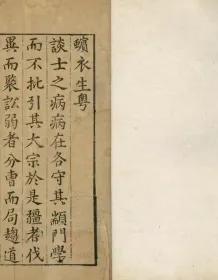 蠙衣生粤
談士之病病在各守其顓門學
而不批引其大宗於是彊者伐
異而聚訟弱者分曹而局趨道